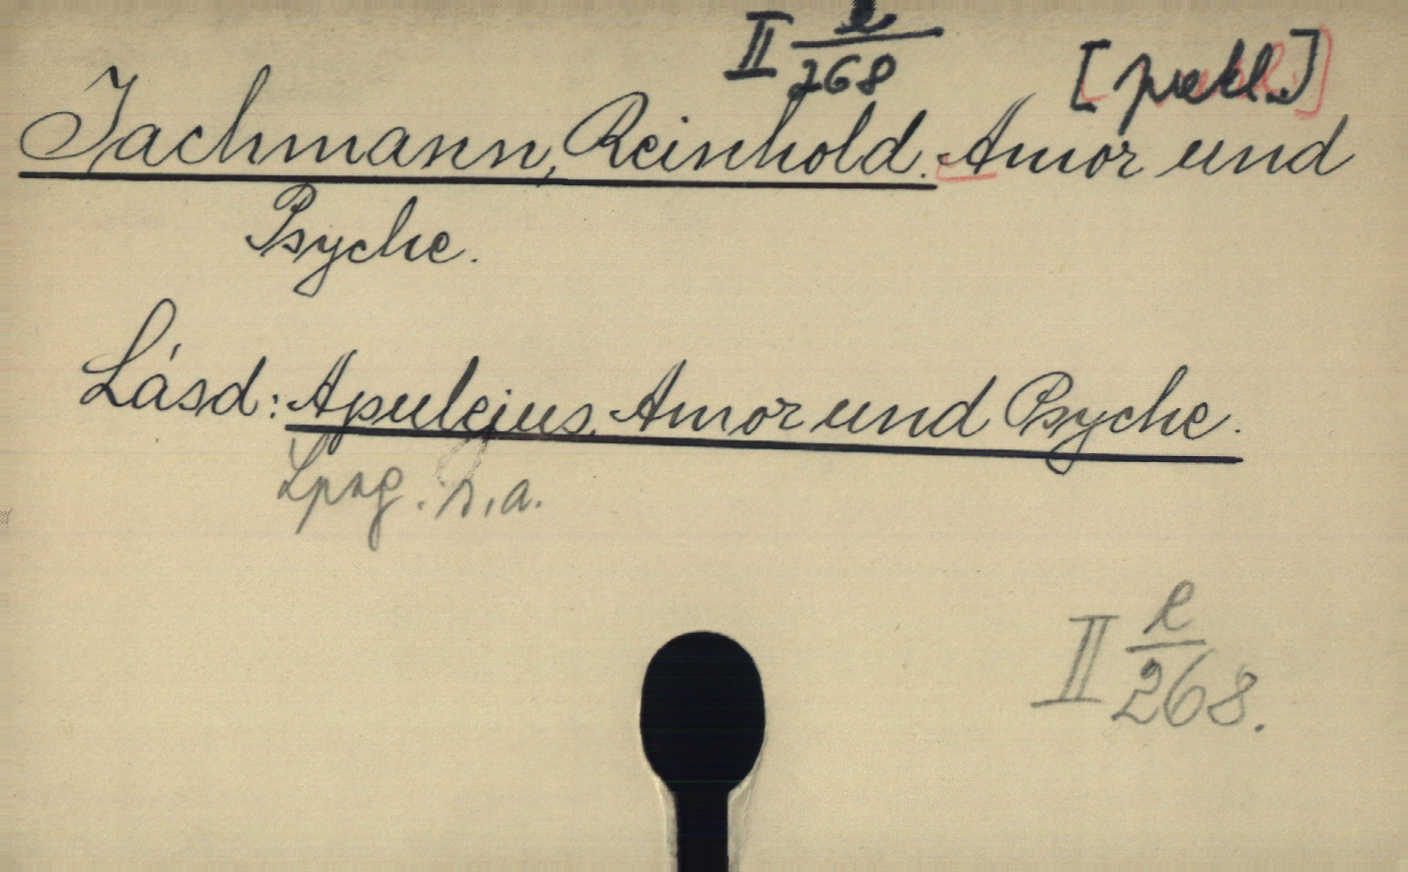 II e/268
[przekl.]
Jachmann, Reinhold. Amor und
Psyche.
Lásd: Apulejus, Amor und Psyche.
Lpzg. s.a.
II e/268.